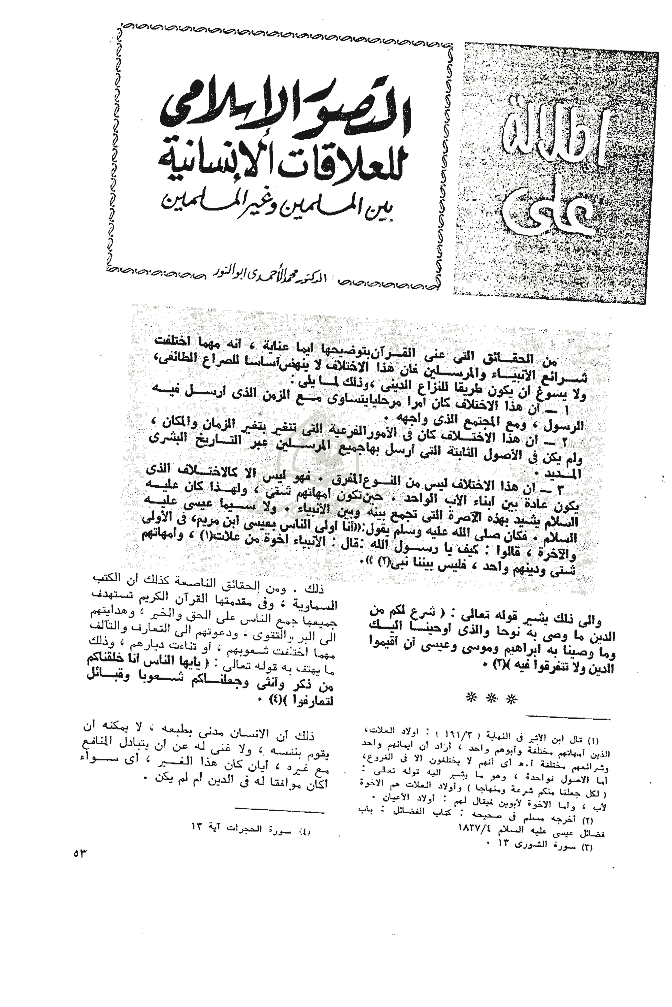 اطلالة
على
التصور الإسلامى
للعلاقات الإنسانية
بين المسلمين وغير المسلمين
الدكتور محمد الأحمدى ابو النور
من الحقائق التى عنى القرآن بتوضيحها ايما عناية ، أنه مهما اختلفت
شرائع الأنبياء والمرسلين فان هذا الاختلاف لا ينهض أساسا للصراع الطائفى،
ولا يسوغ ان يكون طريقا للنزاع الدينى ،وذلك لما يلى :
١ – ان هذا الاختلاف كان أمرا مرحليا يتساوى مع الزمن الذى أرسل فيه
الرسول ، ومع المجتمع الذى واجهه .
٢ – ان هذا الاختلاف كان فى الأمور الفرعية التى تتغير بتغير الزمان والمكان ،
ولم يكن فى الأصول الثابتة التى أرسل بها جميع المرسلين عبر التاريخ البشرى
المديد .
٣ – ان هذا الاختلاف ليس من النوع المفرق . فهو ليس الا كالاختلاف الذى
يكون عادة بين ابناء الأب الواحد ، حين تكون أمهاتهم شتى ، ولهذا كان عليه
السلام يشيد بهذه الآصرة التى تجمع بينه وبين الأنبياء . ولا سيما عيسى عليه
السلام . فكان صلى الله عليه وسلم يقول:((أنا أولى الناس بعيسى ابن مريم، فى الأولى
والآخرة ، قالوا : كيف يا رسول الله :قال : الأنبياء اخوة من علات(١) ، وأمهاتهم
شتى ودينهم واحد ، فليس بيننا نبى(٢) )).
والى ذلك يشير قوله تعالى : ( شرع لكم من
الدين ما وصى به نوحا والذى أوحينا اليك
وما وصينا به ابراهيم وموسى وعيسى أن أقيموا
الدين ولا تتفرقوا فيه )(٣) .
* * *
(١) قال ابن الأثير فى النهاية ( ١٩١/٣ ) : أولاد العلات،
الذين أمهاتهم مختلفة وأبوهم واحد ، أراد أن ايمانهم واحد
وشرائعهم مختلفة ا.هـ أى أنهم لا يختلفون الا فى الفروع،
أما الاصول فواحدة ، وهو ما يشير اليه قوله تعالى :
( لكل جعلنا منكم شرعة ومنهاجا ) وأولاد العلات هم الاخوة
لأب ، وأما الاخوة لأبوين فيقال لهم : أولاد الأعيان .
(٢) أخرجه مسلم فى صحيحه : كتاب الفضائل : باب
فضائل عيسى عليه السلام ١٨٣٧/٤
(٣) سورة الشورى ١٣ .
ذلك . ومن الحقائق الناصعة كذلك أن الكتب
السماوية ، وفى مقدمتها القرآن الكريم تستهدف
جميعها جمع الناس على الحق والخير ، وهدايتهم
الى البر والتقوى . ودعوتهم الى التعارف والتآلف
مهما اختلفت شعوبهم ، أو تناءت ديارهم ، وذلك
ما يهتف به قوله تعالى : ( يايها الناس انا خلقناكم
من ذكر وأنثى وجعلناكم شعوبا وقبائل
لتعارفوا )(٤) .
ذلك أن الانسان مدنى بطبعه ، لا يمكنه أن
يقوم بنفسه ، ولا غنى له عن أن يتبادل المنافع
مع غيره ، أيان كان هذا الغير ، أى سواء
أكان موافقا له فى الدين أم لم يكن .
(٤) سورة الحجرات آية ١٣
٥٣